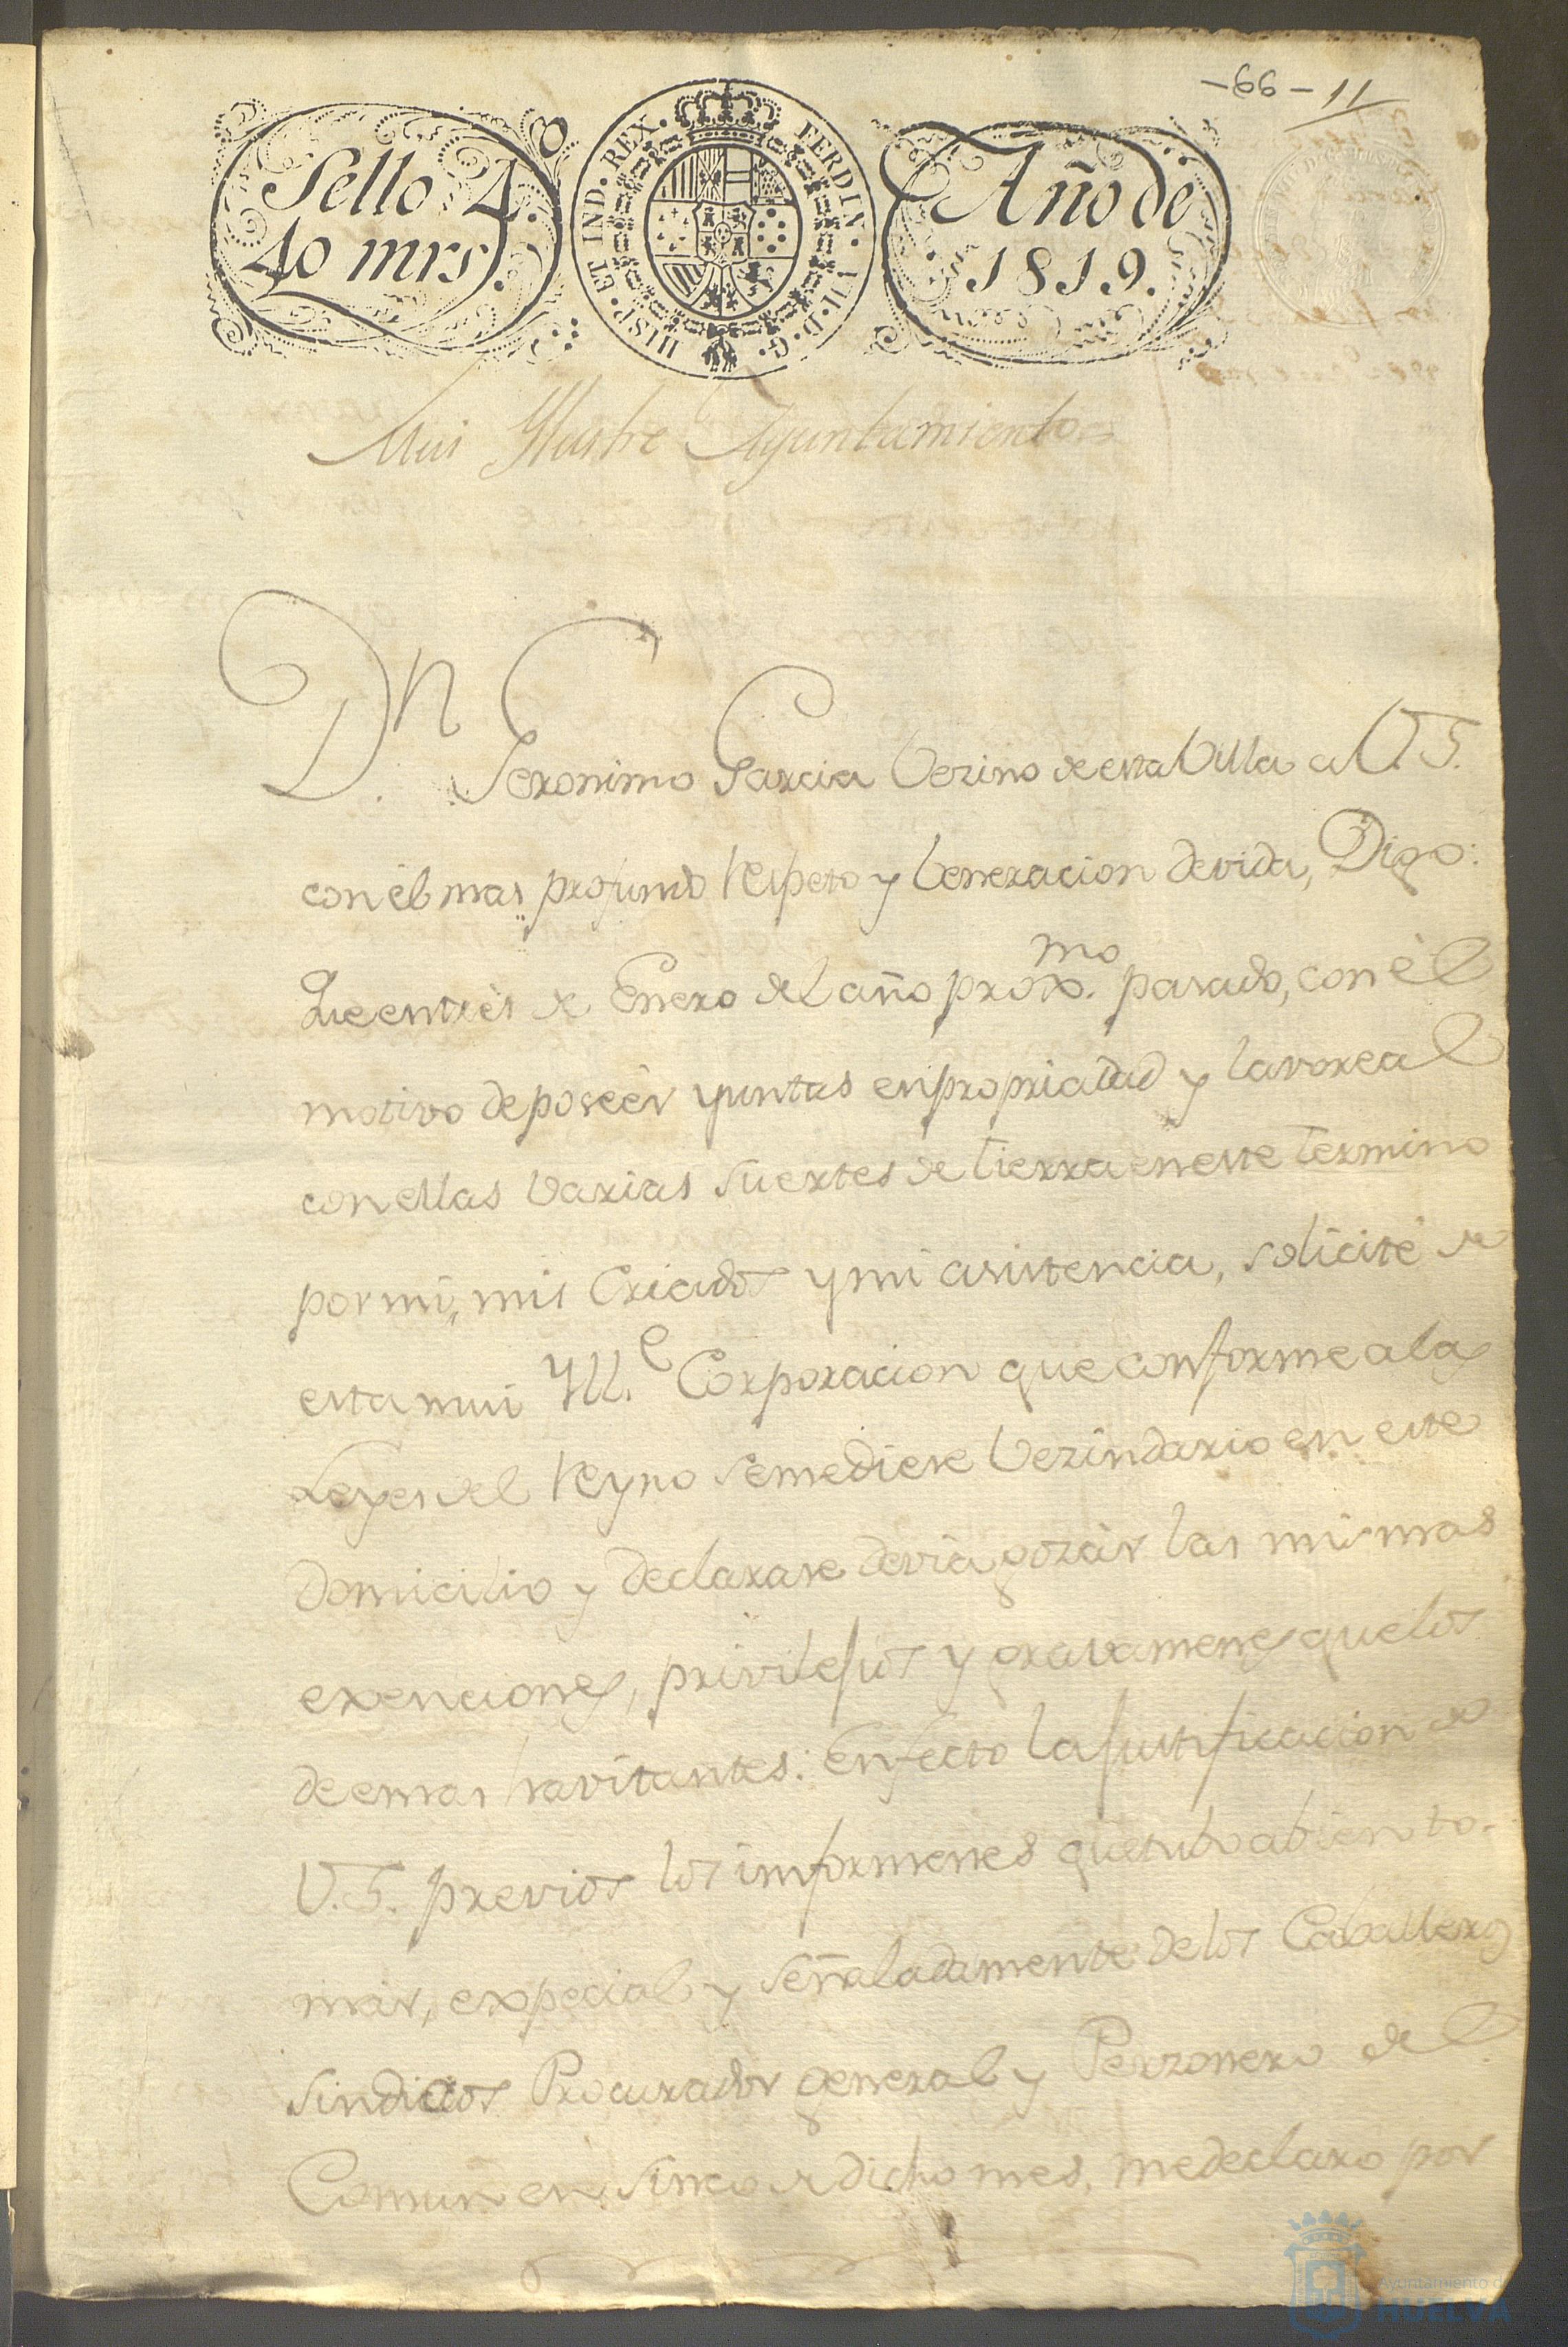 -66- 11
Sello 4.
40 mrs.
FERDIN. VII. D. G. HISP. ET IND. REX.
Año de
1819.
Mui Ylustre Ayuntamiento
Dn. Jeronimo Garcia Vezino de esta Villa a V.S.
con él mas profundo respeto y Veneracion devida, Digo:
Que en tres de Enero del año proxmo. pasado, con él
motivo de poseér yuntas en propriadad y lavoreal
con ellas varias suertes de tierra en este termino
por mi, mis Criados y mi asistencia, solicité de
esta mui Yll.e Corporacion que conforme a las
Leyes del Reyno se me diese Vezindario en este
Domicilio y declarase devia gozár las mismas
exenciones, privilejios y gravamenes que los
deemas havitantes: Enfecto la justificacion de
V.S. previos los informenes que tubo abien to-
már, expecial y señaladamente de los Caballeros
Sindicos Procurador general y Perzonero del
Comun en sinco de dicho mes, me declaro por
Ayuntamiento de
HUELVA